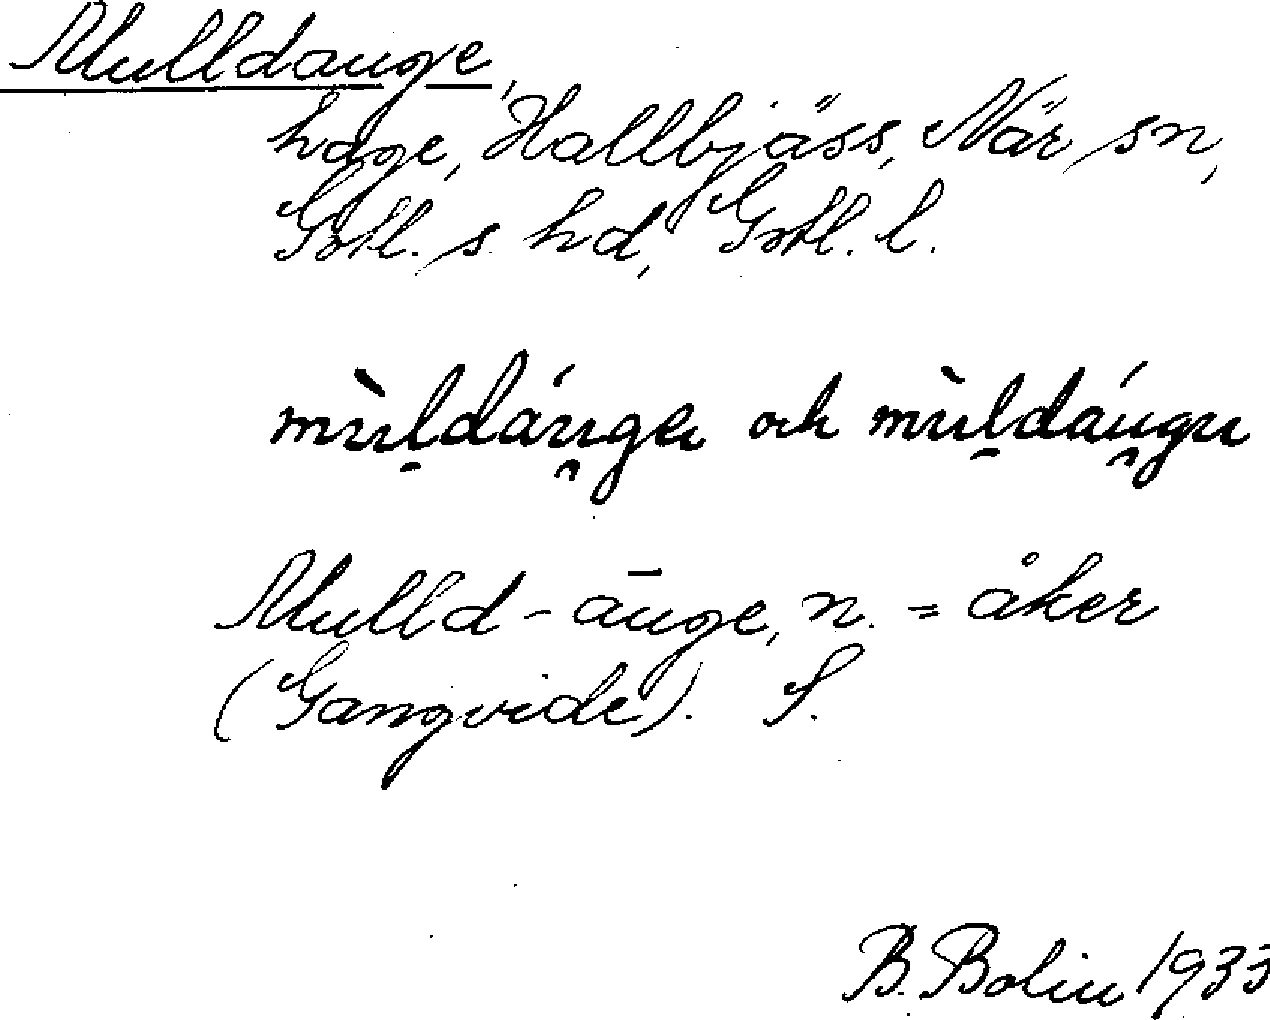 Mulldauge,
hage, Hallbjäss, När sn,
Gotl. s. hd, Gotl. l.
mùḻdáu̯ge och mùḻdáu̯gu
Mulld-āuge, n. = åker
(Gangvide). S.
B. Bolin 1933